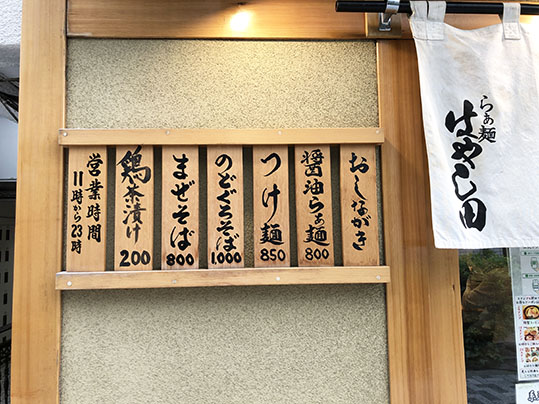 らぁ麺
はやし田
おしながき
醤油らぁ麺 800
つけ麺 850
のどぐろそば 1,000
まぜそば 800
鶏茶漬け 200
営業時間
11時から23時